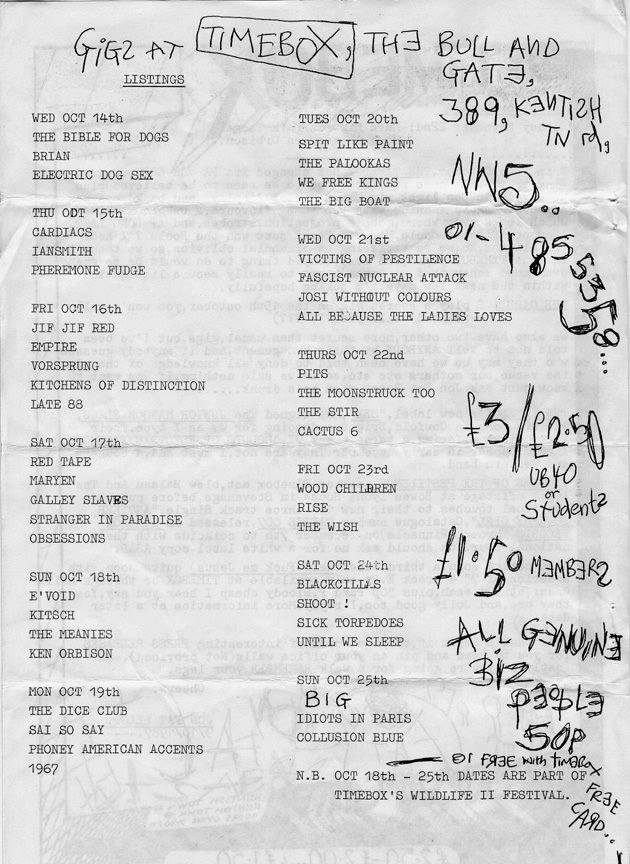 GiGZ AT TIMEBOX, THE BULL AND
GATE,
389, KENTISH
TN rd,
NW5..
01-4855358...
LISTINGS
WED OCT 14th
THE BIBLE FOR DOGS
BRIAN
ELECTRIC DOG SEX
THU ODT 15th
CARDIACS
IANSMITH
PHEREMONE FUDGE
FRI OCT 16th
JIF JIF RED
EMPIRE
VORSPRUNG
KITCHENS OF DISTINCTION
LATE 88
SAT OCT 17th
RED TAPE
MARYEN
GALLEY SLAVES
STRANGER IN PARADISE
OBSESSIONS
SUN OCT 18th
E'VOID
KITSCH
THE MEANIES
KEN ORBISON
MON OCT 19th
THE DICE CLUB
SAI SO SAY
PHONEY AMERICAN ACCENTS
1967
TUES OCT 20th
SPIT LIKE PAINT
THE PALOOKAS
WE FREE KINGS
THE BIG BOAT
WED OCT 21st
VICTIMS OF PESTILENCE
FASCIST NUCLEAR ATTACK
JOSI WITHOUT COLOURS
ALL BECAUSE THE LADIES LOVES
THURS OCT 22nd
PITS
THE MOONSTRUCK TOO
THE STIR
CACTUS 6
FRI OCT 23rd
WOOD CHILDREN
RISE
THE WISH
SAT OCT 24th
BLACKCILLS
SHOOT !
SICK TORPEDOES
UNTIL WE SLEEP
SUN OCT 25th
BIG
IDIOTS IN PARIS
COLLUSION BLUE
N.B. OCT 18th - 25th DATES ARE PART OF
TIMEBOX'S WILDLIFE II FESTIVAL.
£3/£2.50
UB40
or
Studentz
£1.50 MEMBERZ
ALL GENUINE
BIZ
PEOPLE
50p
or FREE with TIMEBOX
FREE
CARD...